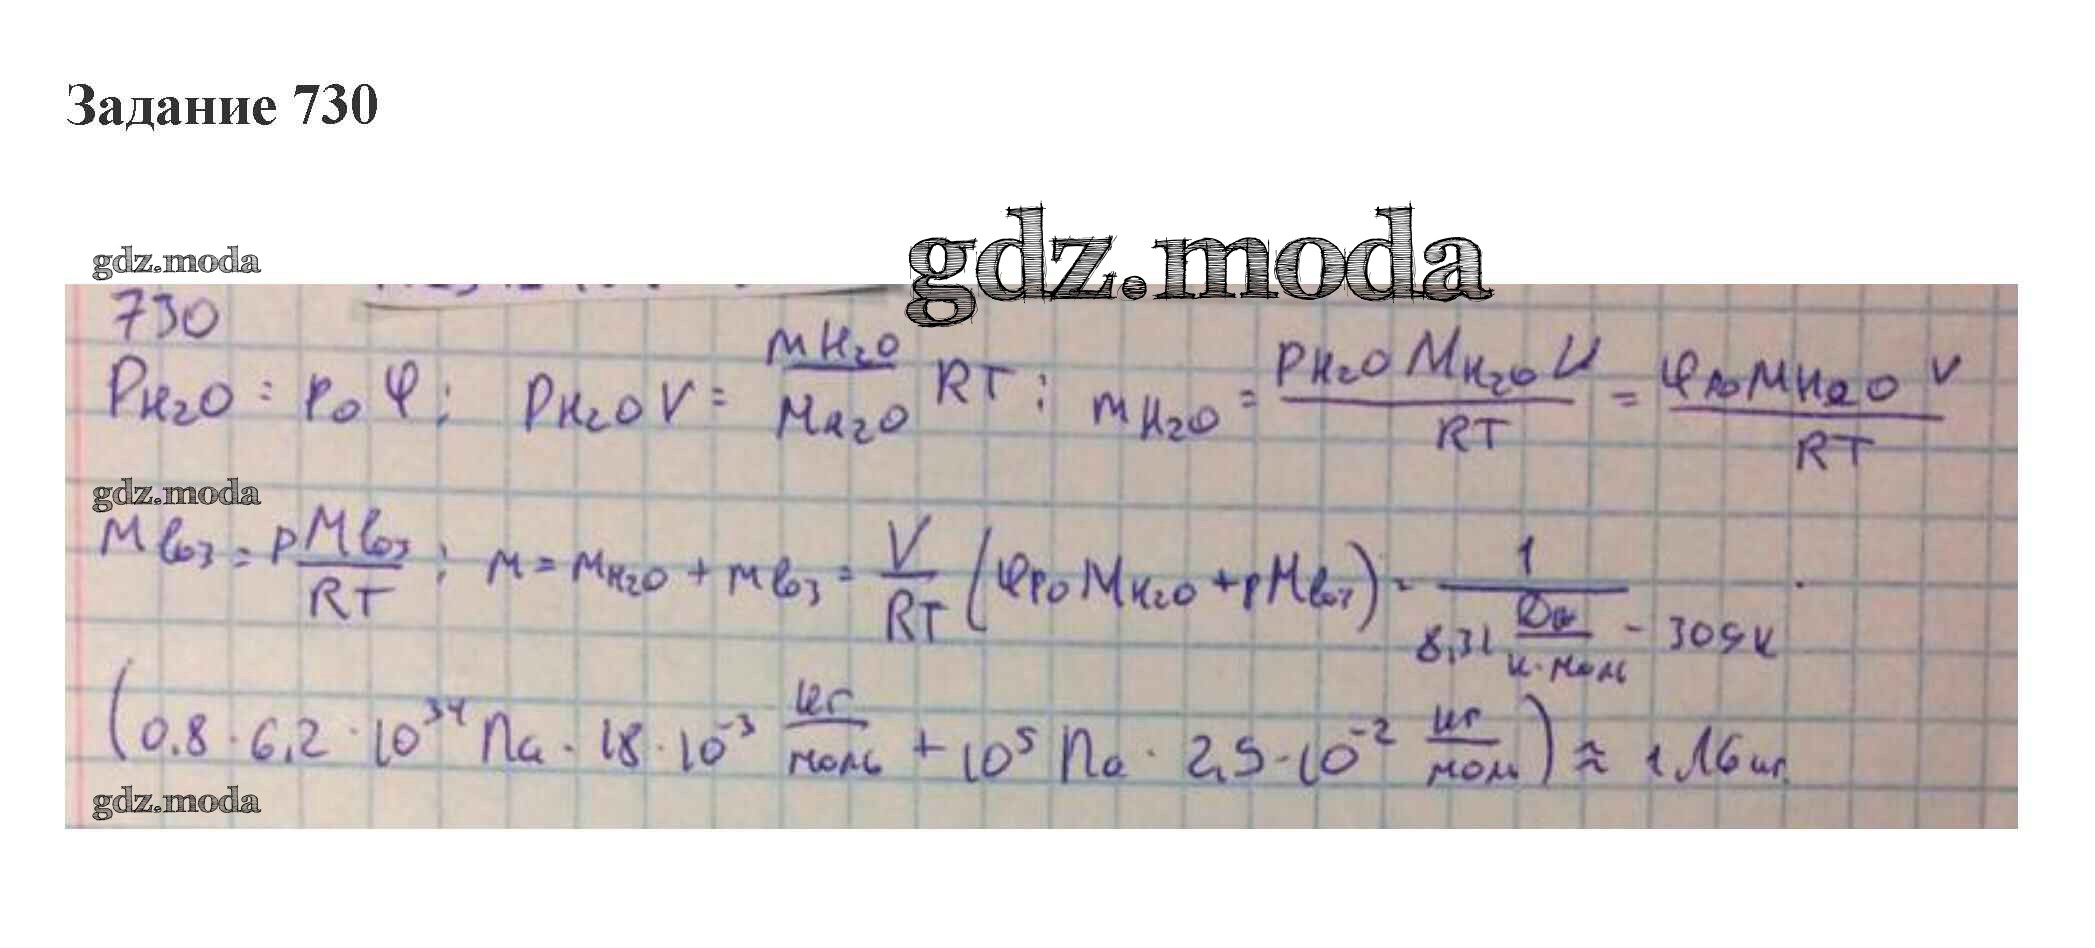 Задание 730
gdz.moda
gdz.moda
730
P_{H2O} = p_0 φ; p_{H2O} V = \frac{m_{H2O}}{M_{H2O}} RT; m_{H2O} = \frac{p_{H2O} M_{H2O} V}{RT} = \frac{φ p_0 M_{H2O} V}{RT}
gdz.moda
m_{воз} = \frac{p M_{воз}}{RT}; m = m_{H2O} + m_{воз} = \frac{V}{RT} (φ p_0 M_{H2O} + p M_{воз}) = \frac{1}{8,31 \frac{Дж}{К·моль} - 309 К} ·
(0,8 · 6,2 · 10^{34} Па · 18 · 10^{-3} \frac{кг}{моль} + 10^5 Па · 2,9 · 10^{-2} \frac{кг}{моль}) ≈ 1,16 кг.
gdz.moda